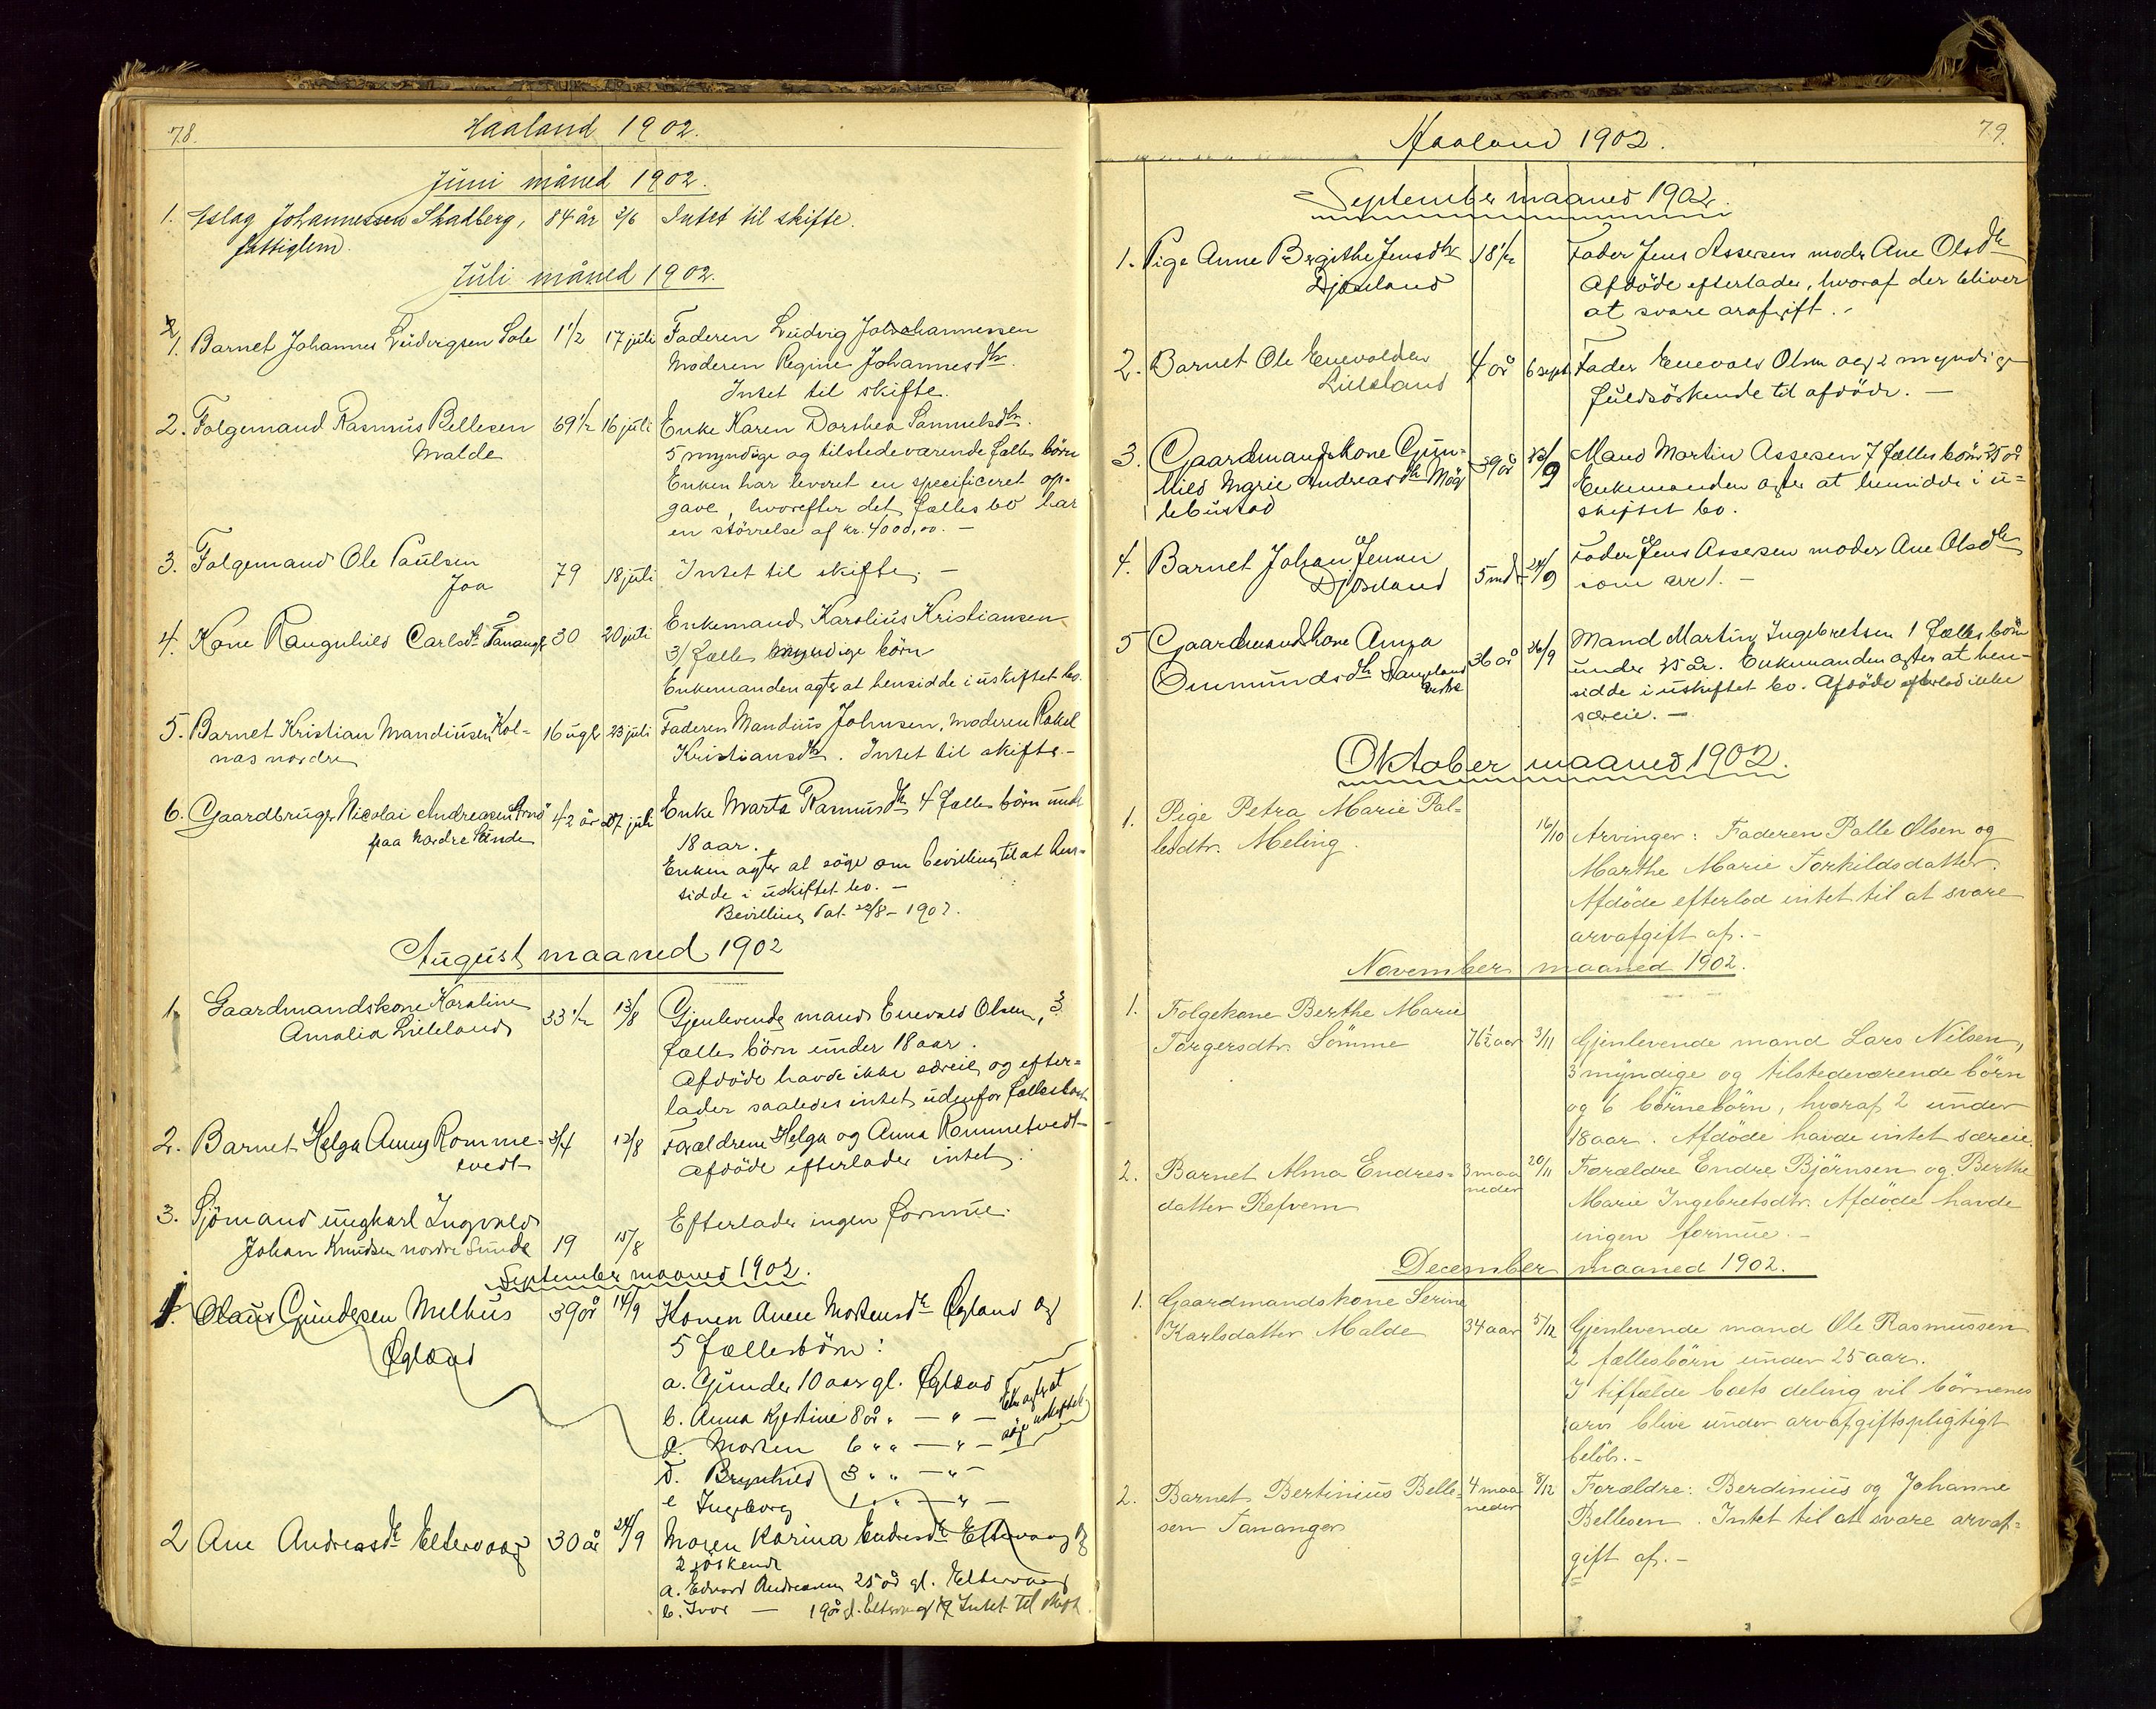 78.
Haaland 1902.
Juni måned 1902.
1. Eslag Johannessen Skadberg, 84 år 3/6 Intet til skifte.
fattiglem.
Juli måned 1902.
1. Barnet Johannes Ludvigsen Sole 1 1/2 17 juli Faderen Ludvig Johannessen
Moderen Regine Johannesdtr.
Intet til skifte.
2. Folgemand Rasmus Bellesen 69 1/2 16 juli Enke Karen Dorthea Samuelsdtr.
Malde 5 myndige og tilstedeværende fælles börn
Enken har leveret en specificeret op-
gave, hvorefter det fælles bo har
en störrelse af kr. 4000,00. -
3. Folgemand Ole Paulsen
Joa 79 18 juli Intet til skifte. -
4. Kone Rangnhild Carlsdtr Tananger 30 20 juli Enkemand Karolius Kristiansen
3 fælles umyndige börn
Enkemanden agter at hensidde i uskiftet bo.
5. Barnet Kristian Mandiusen Kol- 16 uger 23 juli Faderen Mandius Johnsen, moderen Rakel
nas nordre Kristiansdtr. Intet til skifte. -
6. Gaardbruger Nicolai Andreasen 42 år 27 juli Enke Marta Rasmusdtr 4 fælles börn under
paa nordre Sunde 18 aar.
Enken agter at söge om bevilling til at hen-
sidde i uskiftet bo. -
Bevilling dat. 22/8 - 1902.
August maaned 1902
1. Gaardmandskone Karoline 33 1/2 13/8 Gjenlevende mand Enevald Olsen, 3
Amalia Lilleland fælles börn under 18 aar.
Afdöde havde ikke særeie, og efter-
lader saaledes intet udenfor fællesboet
2. Barnet Helga Anny Romme- 3/4 12/8 Forældrene Helga og Anna Rommetvedt
tvedt Afdöde efterlader intet.
3. Sjömand ungkarl Ingvald Efterlader ingen formue.
Johan Knudsen nordre Sunde 19 15/8
September maaned 1902.
1. Olaus Gundersen Melhus 39 år 14/9 Konen Anne Mortensdtr Øgland og
Øgland 5 fællesbörn:
a. Gunder 10 aar gl. Øgland
b. Anna Kjestine 8 år " - " -
c. Morten 6 " " - " -
d. Brynhild 3 " " - " -
e Ingeborg 1 " " - " -
2 Ane Andreasdtr Eltervaag 30 år 24/9 Moren Karina Endresdtr Eltervaag og
2 söskende
a. Edvard Andreasen 25 år gl. Eltervaag
b. Ivar — 19 år gl. Eltervaag Intet til skifte
79.
Haaland 1902.
September maaned 1902.
1. Pige Anne Bergithe Jensdtr 18 1/2 Fader Jens Assersen moder Ane Olsdtr
Djosland Afdöde efterlader, hvoraf der bliver
at svare arafgift. -
2. Barnet Ole Enevoldsen 4 år 6 sept Fader Enevald Olsen og 2 myndige
Lilleland fuldsöskende til afdöde. -
3. Gaardmandskone Gun- 39 år /9 Mand Martin Assersen 7 fælles börn 25 år
hild Marie Andreasdtr Mög Enkemanden agter at hensidde i u-
lebustad skiftet bo.
4. Barnet Johan Jensen 5 mdr 24/9 Fader Jens Assersen moder Ane Olsdtr
Djosland som nr 1. -
5 Gaardmandskone Anna 36 år 26/9 Mand Martin Ingebretsen 1 fælles börn
Ommundsdtr under 25 år. Enkemanden agter at hen-
sidde i uskiftet bo. Afdöde efterlod ikke
særeie. -
Oktober maaned 1902.
1. Pige Petra Marie Pal-
lesdtr. Meling. 16/10 Arvinger: Faderen Palle Olsen og
Marthe Marie Torkildsdatter.
Afdöde efterlod intet til at svare
arvafgift af. -
November maaned 1902.
1. Folgekone Berthe Marie
Torgersdtr. Sömme 76 1/2 aar 3/11 Gjenlevende mand Lars Nilsen,
3 myndige og tilstedeværende börn
og 6 börnebörn, hvoraf 2 under
18 aar. Afdöde havde intet særeie.
2. Barnet Alma Endres- 3 maa 20/11 Forældre Endre Björnsen og Berthe
neder
datter Refvem Marie Ingebretsdtr. Afdöde havde
ingen formue. -
December maaned 1902.
1. Gaardmandskone Serine
Karlsdatter Malde 34 aar 5/12 Gjenlevende mand Ole Rasmussen
2 fællesbörn under 25 aar.
I tilfælde boets deling vil börnenes
arv blive under arvafgiftspligtigt
belöb. -
2. Barnet Bertinius Belle- 4 maa 8/12 Forældre: Berdinius og Johanne
neder
sen Tananger Bellesen. Intet til at svare arvaf-
gift af. -